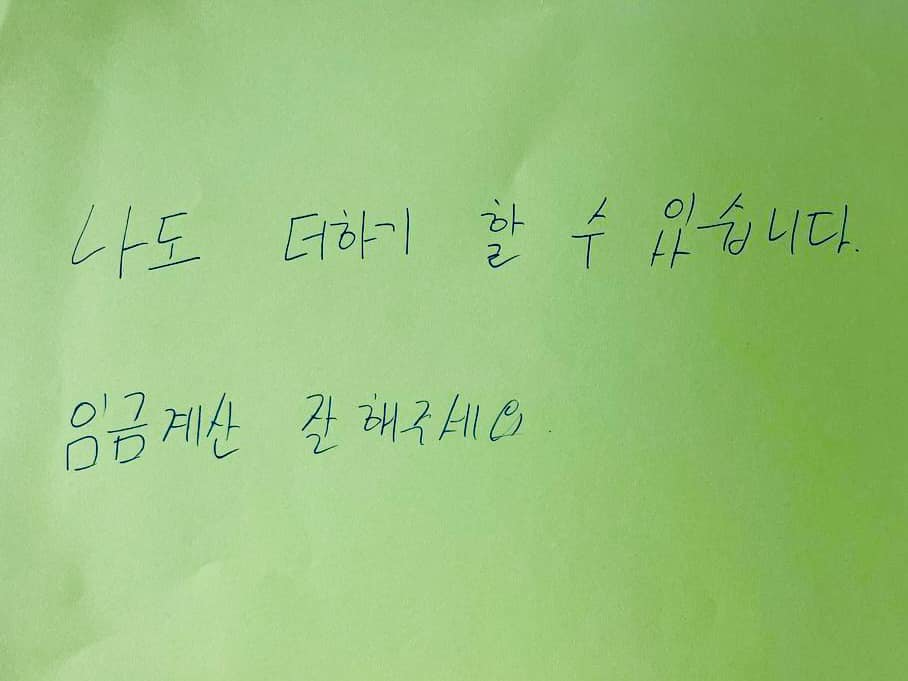 나도 더하기 할 수 있습니다.
임금계산 잘 해주세요.